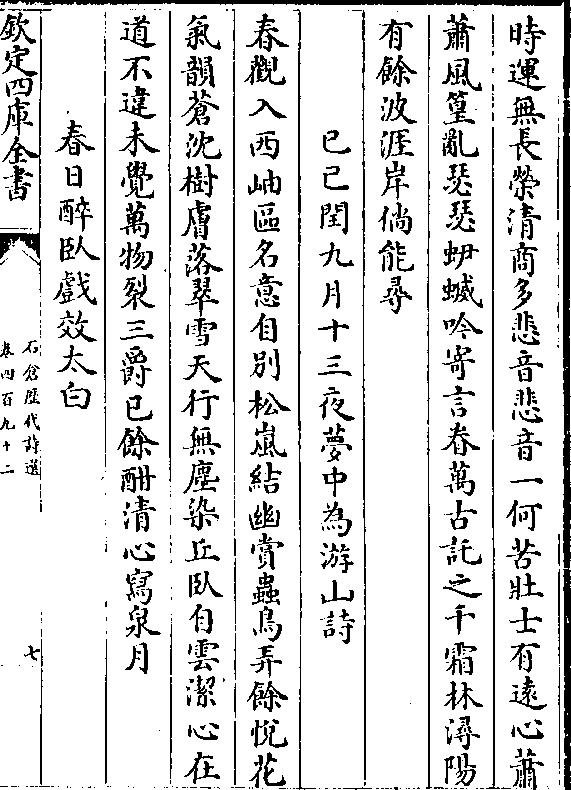 時運無長榮清商多悲音悲音一何苦壯士有遠心蕭
蕭風篁亂瑟瑟蚓蝛吟寄言眷萬古託之千霜林潯陽
有餘波涯岸倘能尋
己巳閏九月十三夜夢中為游山詩
春觀入西岫區名意自別松嵐結幽賞蟲鳥弄餘悅花
氣韻蒼沈樹膚落翠雪天行無塵染丘臥白雲潔心在
道不違未覺萬物裂三爵已餘酣清心寫泉月
春日醉臥戲效太白
欽定四庫全書
石倉歷代詩選
卷四百九十二
七